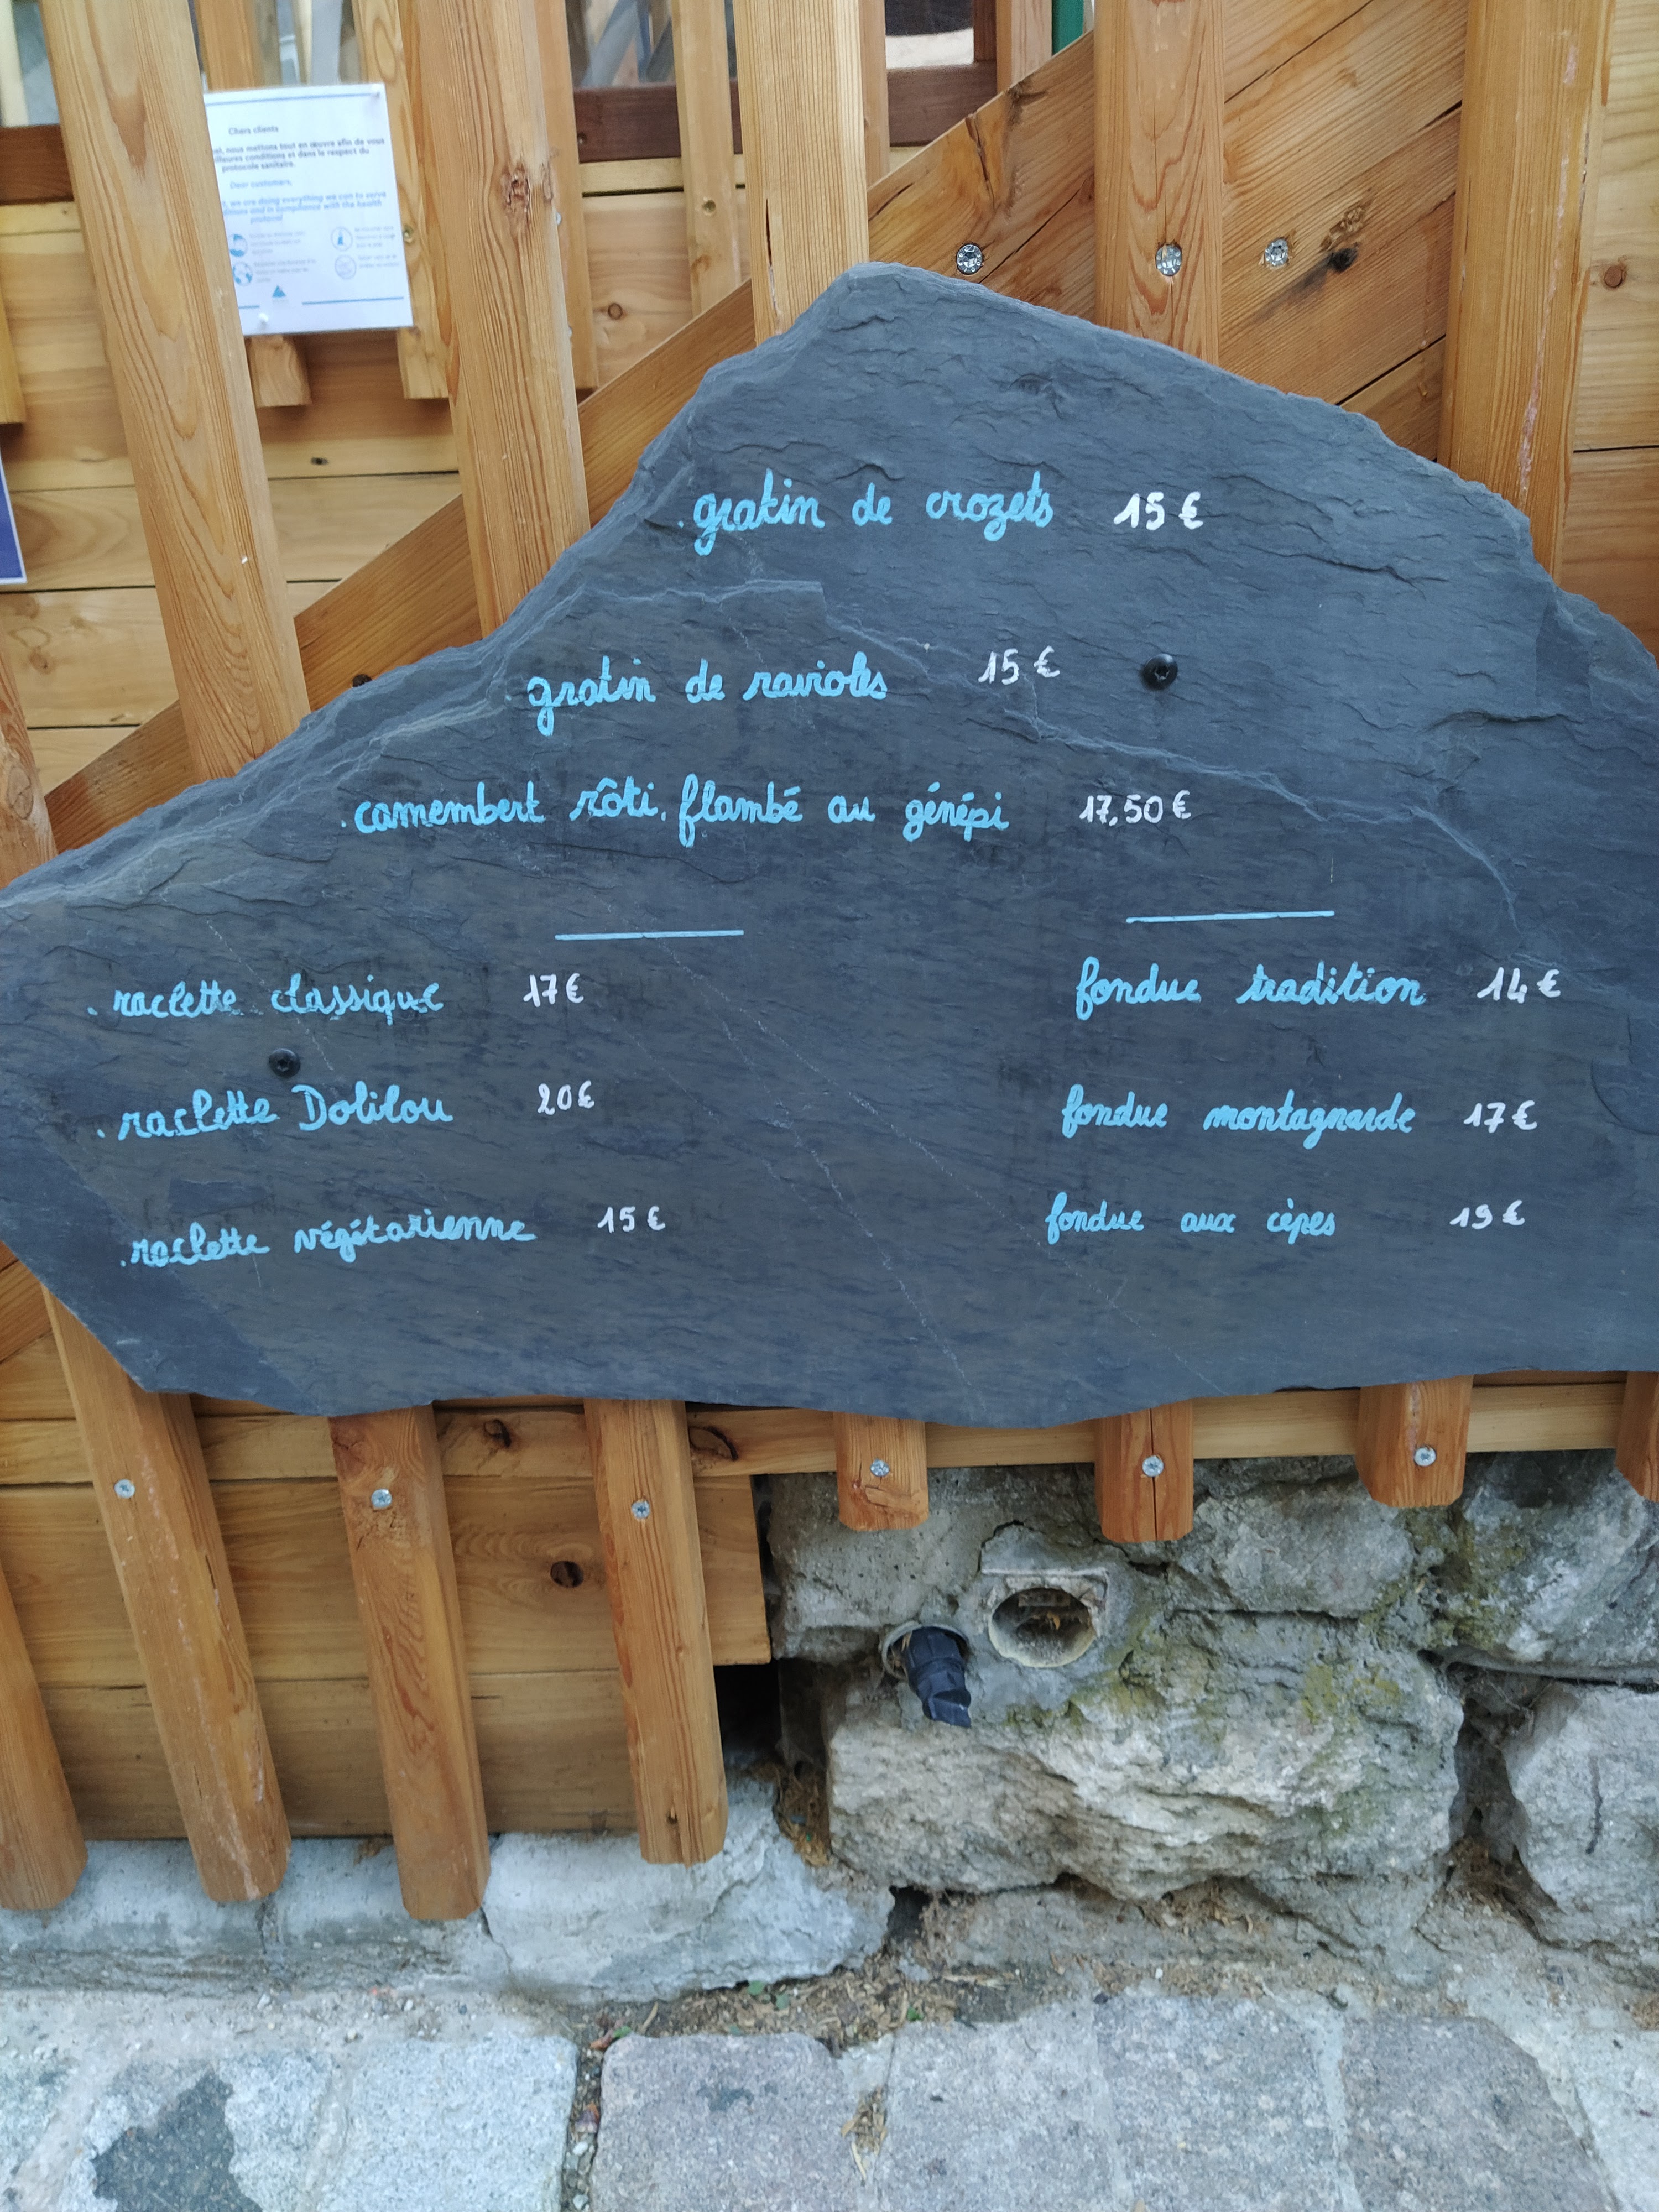 Chers clients
nous mettons tout en œuvre afin de vous
conditions et dans le respect du
protocole sanitaire.
Dear customers,
we are doing everything we can to serve
and in compliance with the health
protocol
. gratin de crozets 15 €
. gratin de ravioles 15 €
. camembert rôti, flambé au génépi 17,50 €
. raclette classique 17 €
. raclette Dolilou 20 €
. raclette végétarienne 15 €
fondue tradition 14 €
fondue montagnarde 17 €
fondue aux cèpes 19 €